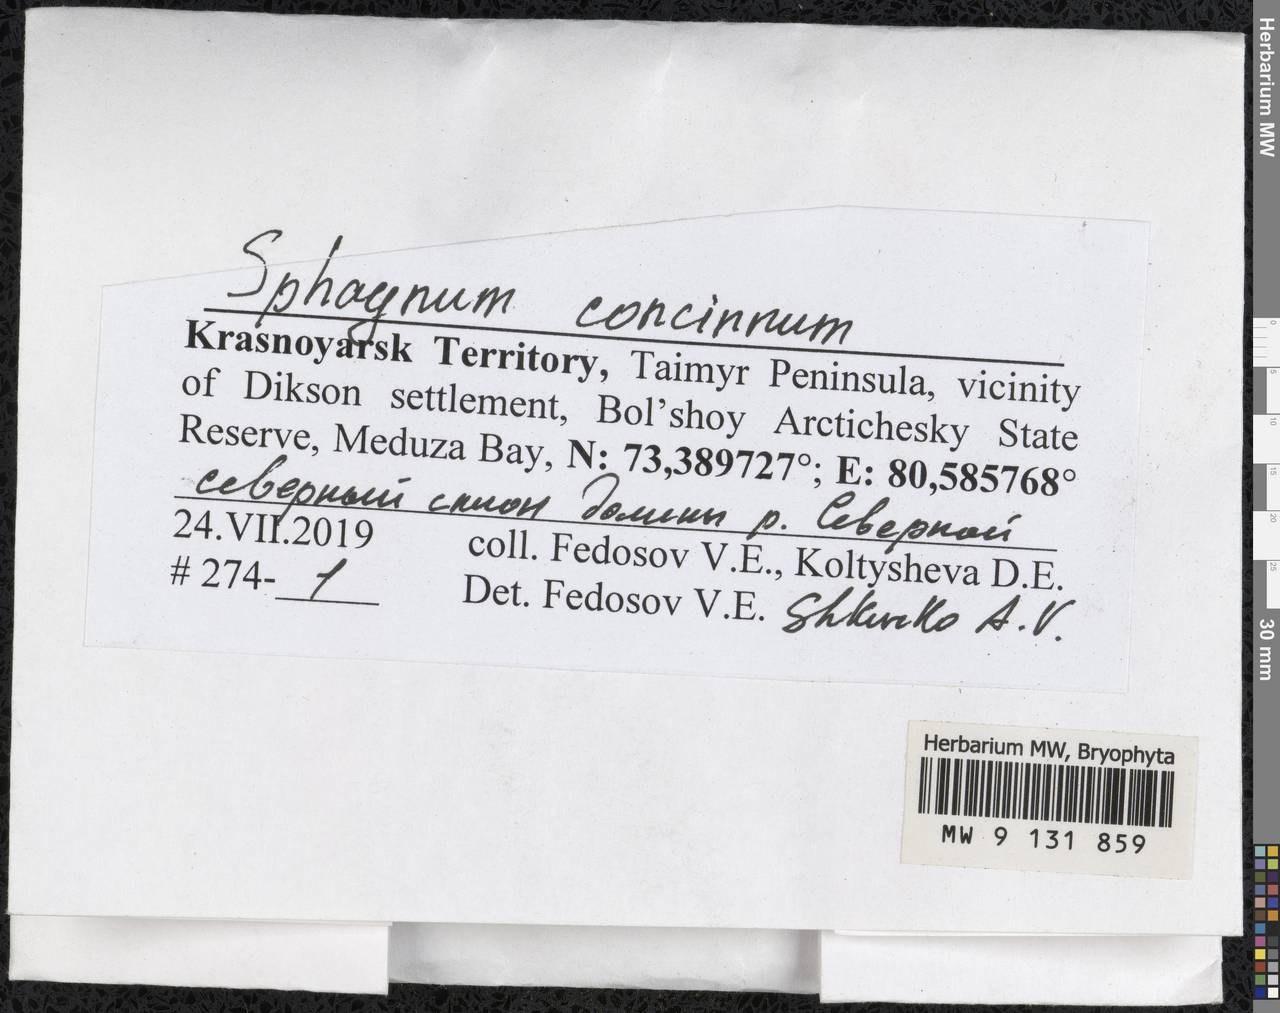 Sphagnum concinnum
Krasnoyarsk Territory, Taimyr Peninsula, vicinity
of Dikson settlement, Bol'shoy Arctichesky State
Reserve, Meduza Bay, N: 73,389727°; E: 80,585768°
северный склон долины р. Северной
24.VII.2019 coll. Fedosov V.E., Koltysheva D.E.
# 274-1 Det. Fedosov V.E. Shkurko A.V.
Herbarium MW, Bryophyta
MW 9 131 859
Herbarium MW
0
5
10
15
20
25
30 mm